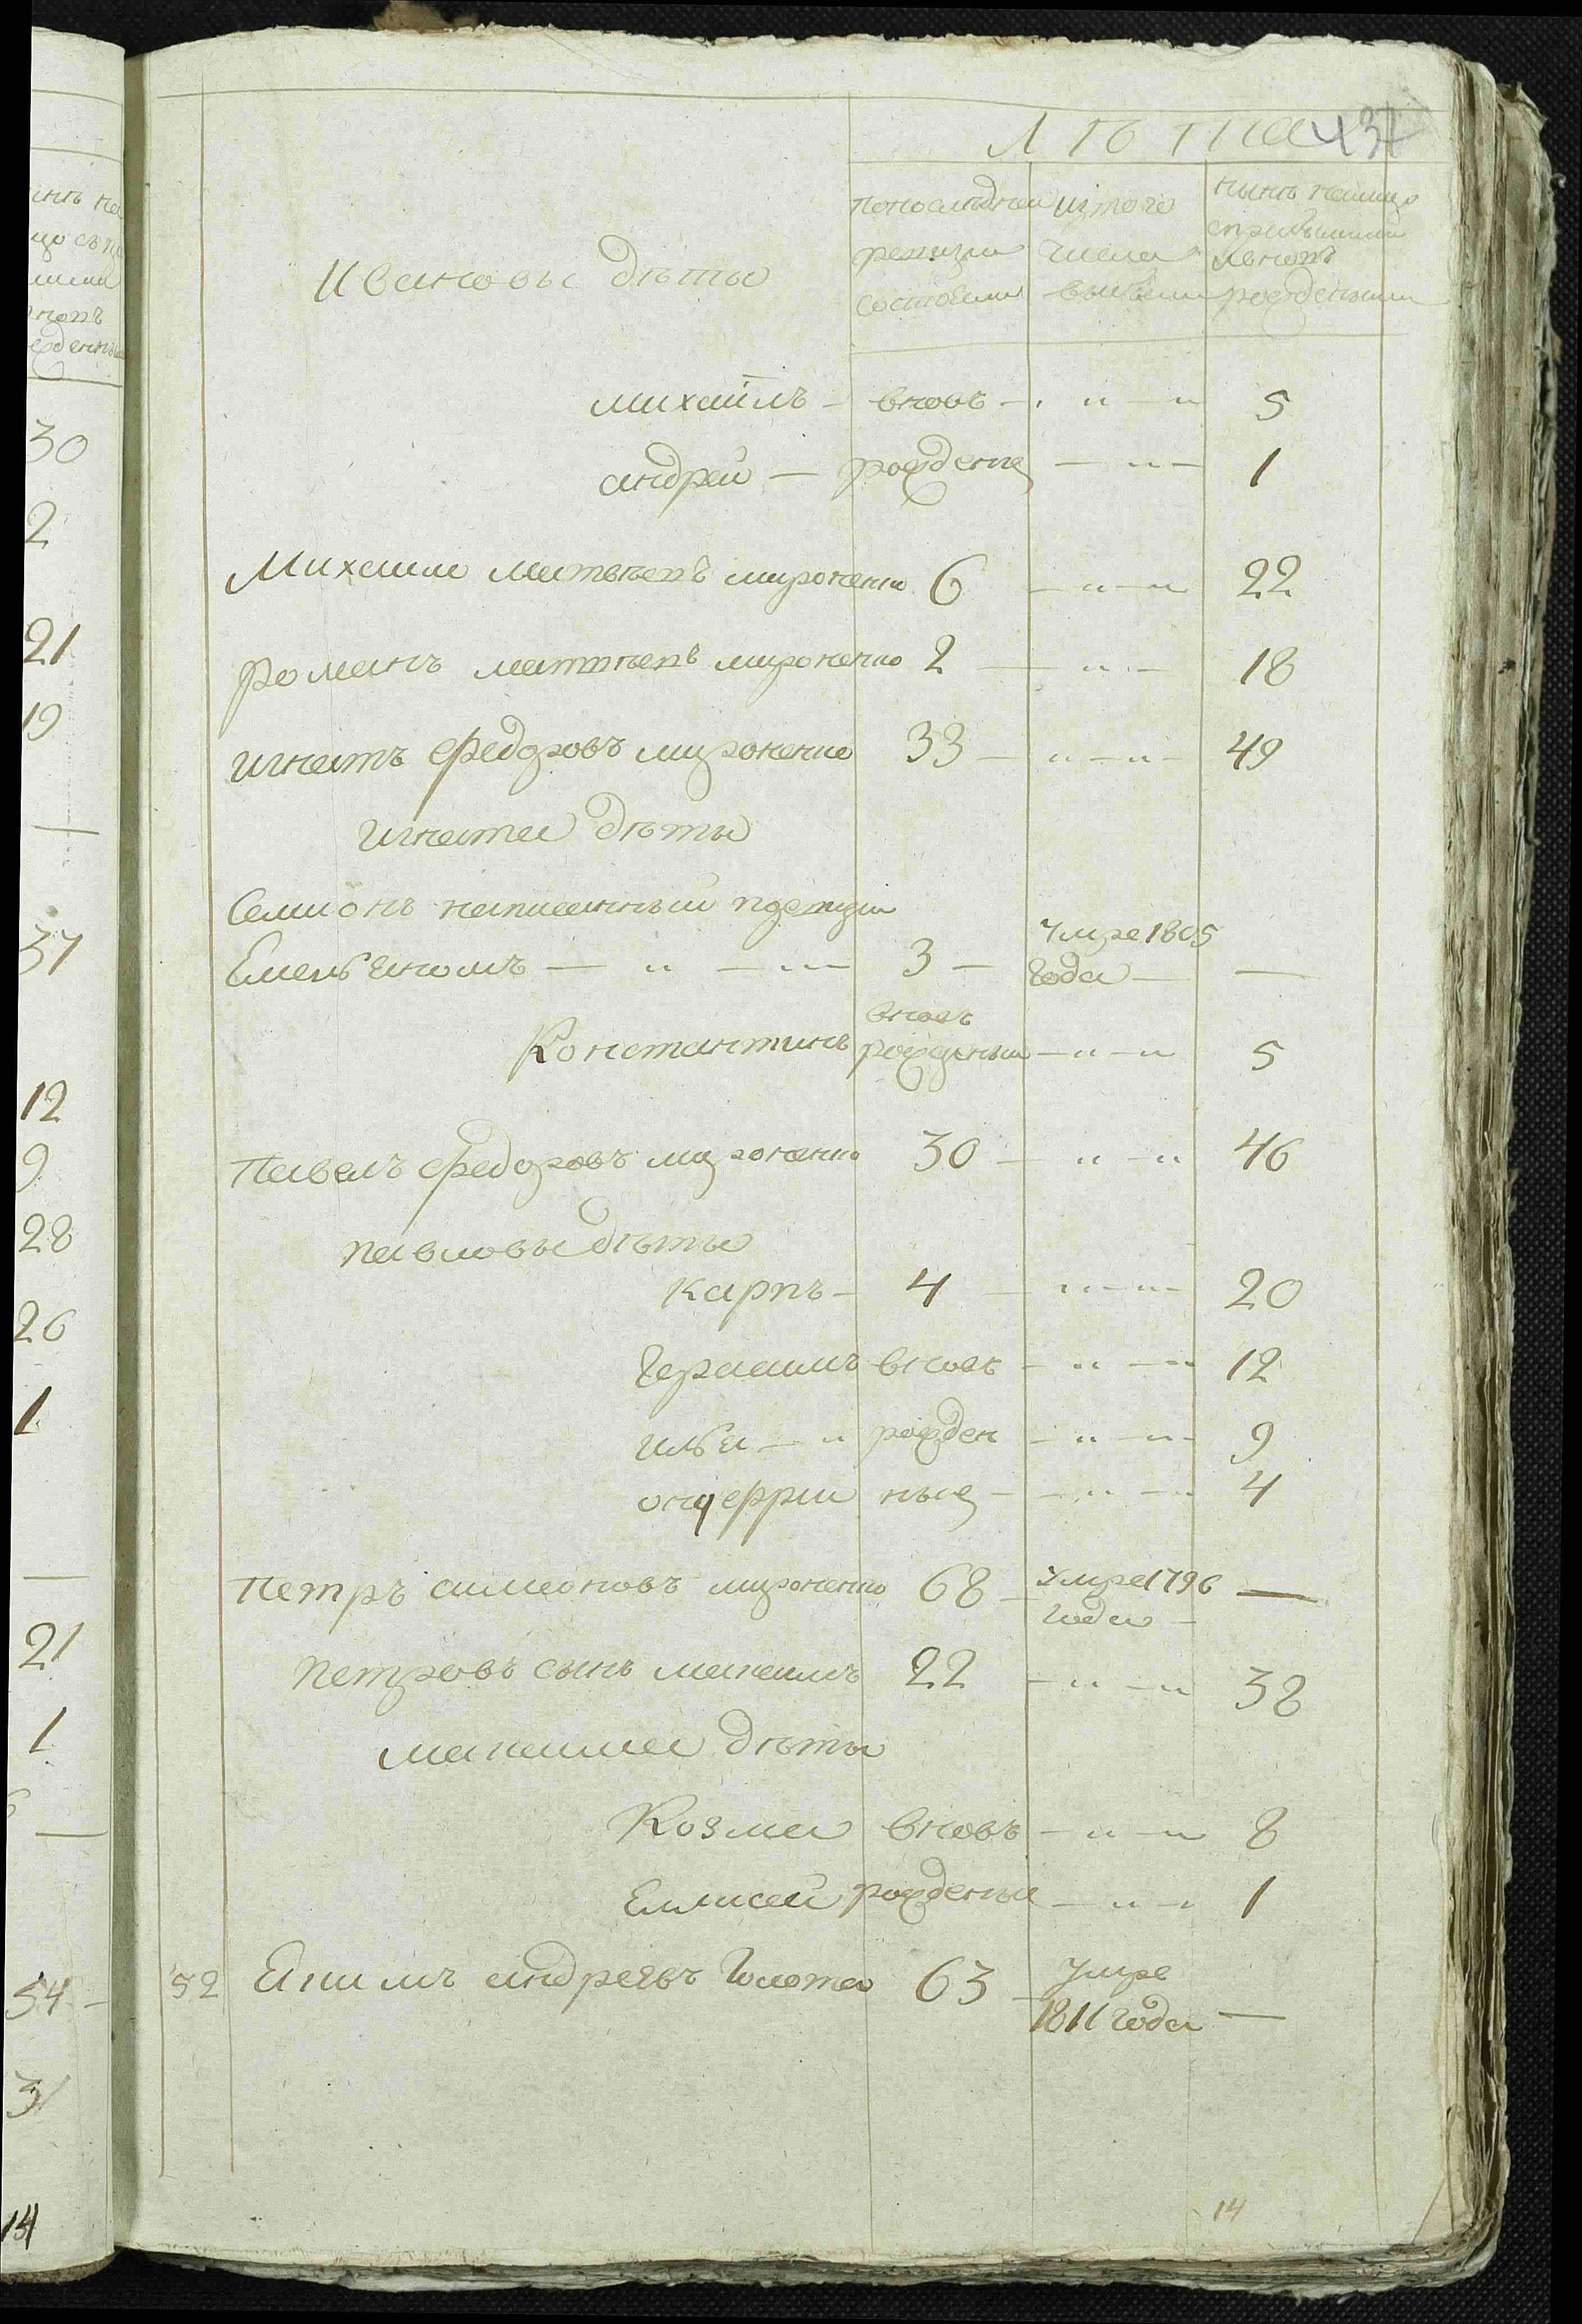 ЛѢТА 437
по последнеи ревизии состояли
изтого числа выбыли
нынѣ налицо сприбылыми ивновь рожденными
Ивановы дѣти
михаилъ - вновь - " - " 5
андреи - рожденыя - " - 1
Михаила матвеевъ мироненко 6 - " - " 22
романъ матвеевъ мироненко 2 - " - 18
игнатъ федоровъ мироненко 33 - " - " - 49
игната дѣти
Семионъ написанныи
Емельяномъ - " - " - 3 - Умре 1805 года - —
Константинъ вновь рожденыи - " - " 5
павелъ федоровъ мироненко 30 - " - " 46
павловы дѣти
карпъ - 4 - " - " - 20
Герасимъ вновь - " - " 12
илья - " рожден - " - " - 9
онуеррии ныя - - " - " 4
петръ симеоновъ мироненко 68 - Умре 1796 года - —
петровъ сынъ максимъ 22 - " - " 38
максима дѣти
Козма вновь - " - " 8
Елисеи рожденыя - " - 1
52 Якимъ андреевъ Голота 63 - Умре 1811 года —
14
30
2
21
19
—
37
12
9
28
26
1
—
21
1
—
54 -
31
14